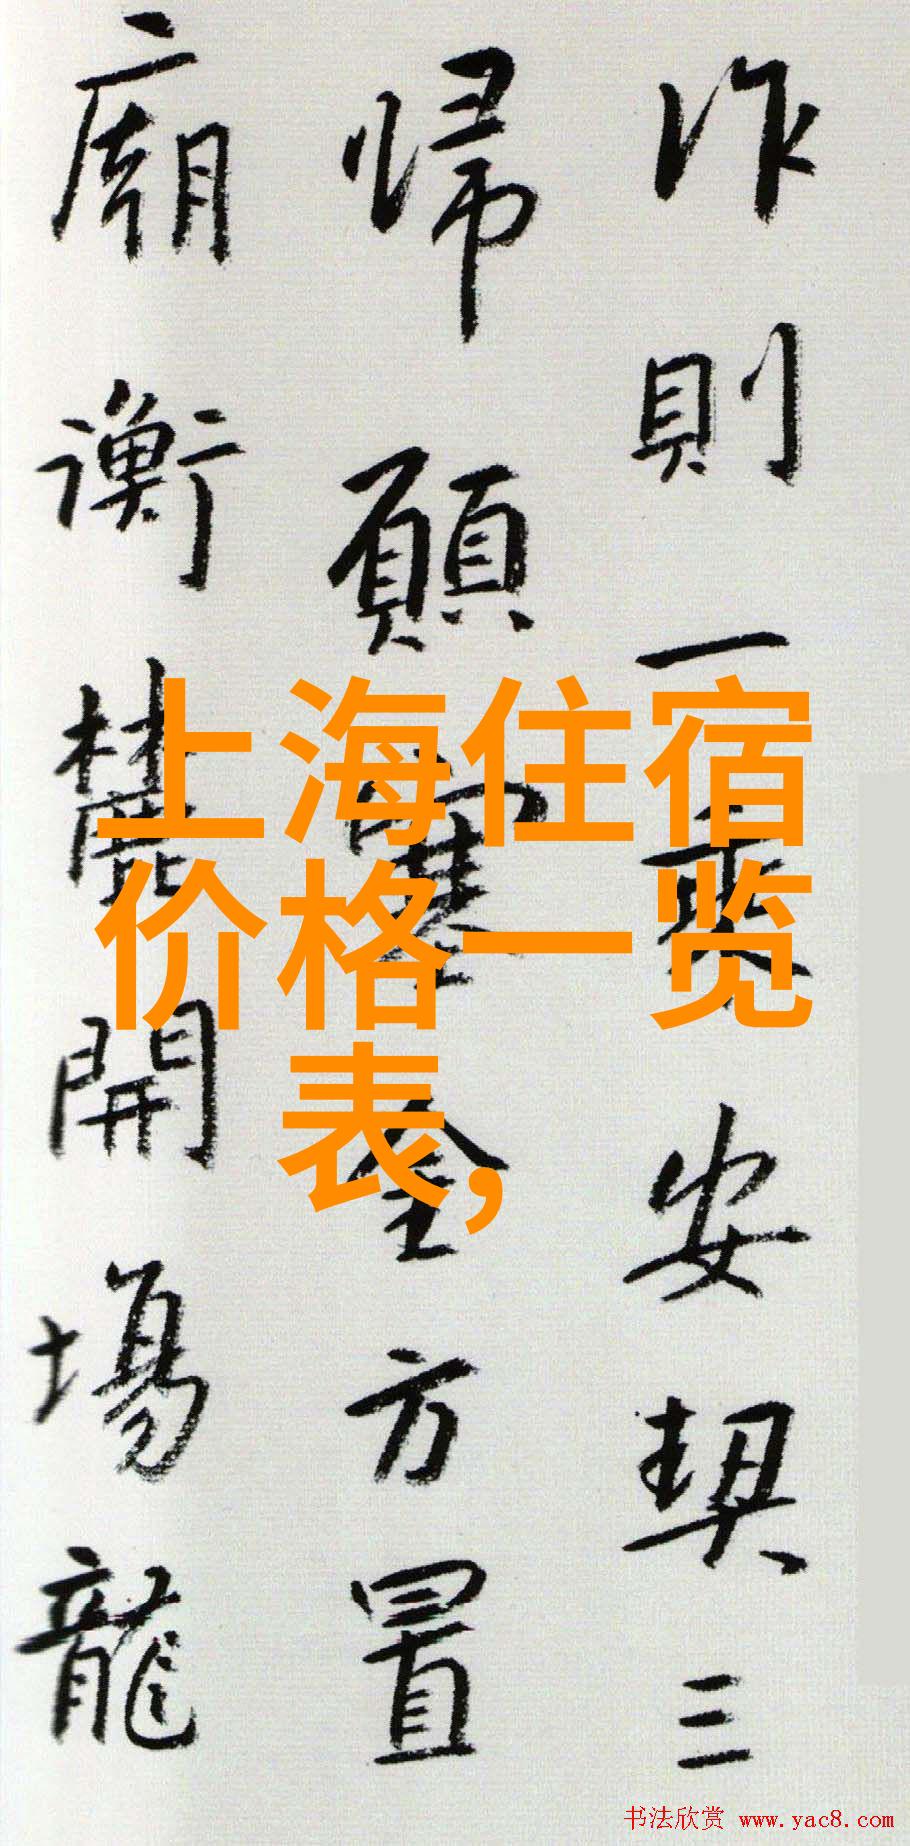 作則一乘安契三
歸願塞全方置
廟衡麓開場龍
上海住宿
价格一览
表,
书法欣赏 www.yac8.com